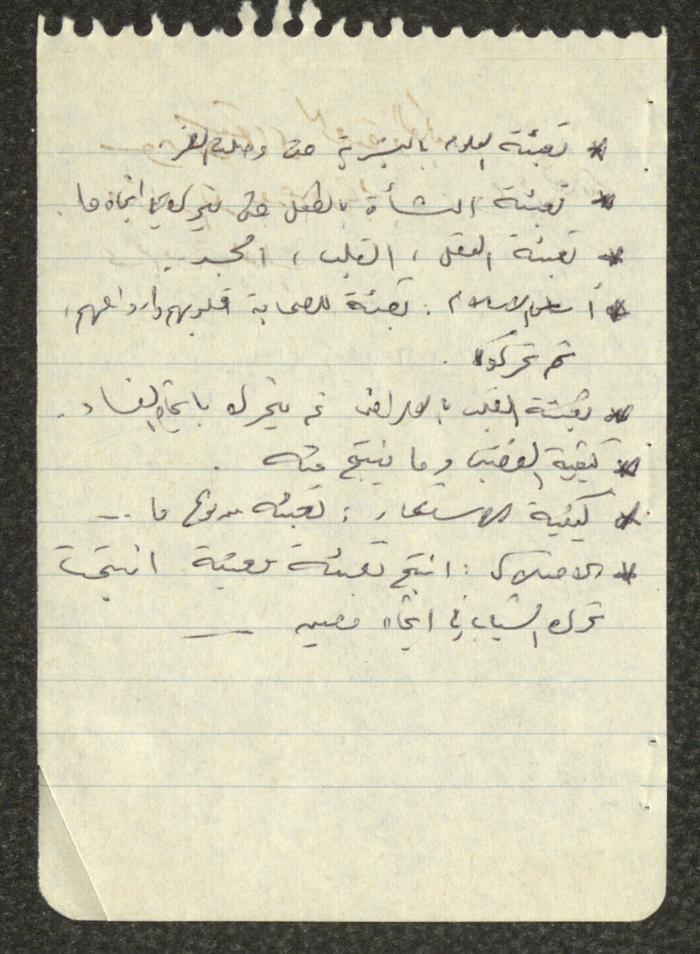 * تعبئة العلوم بالبشرية حتى وصلت القمر.
* تعبئة النشأة بالطفل حتى يتحرك في اتجاه ما.
* تعبئة العقل، القلب، الجسد..
* أساس الإسلام: تعبئة للصحابة قلوبهم وأرواحهم،
ثم تحركوا.
* تعبئة القلب بالأمراض ثم يتحرك باتجاه الفساد.
* كيفية الغضب وما ينتج عنه.
* كيفية الاستعمار: تعبئة من نوع ما...
* الاحتلال: انتج تعبئة معينة انتجت
تحرك الشباب في اتجاه معين